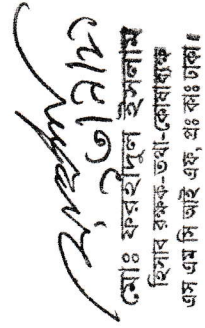 মোঃ ফরহাদুল ইসলাম
হিসাব রক্ষক-তথা-কোষাধ্যক্ষ
এস এম সি আই এফ, প্রঃ কাঃ ঢাকা।